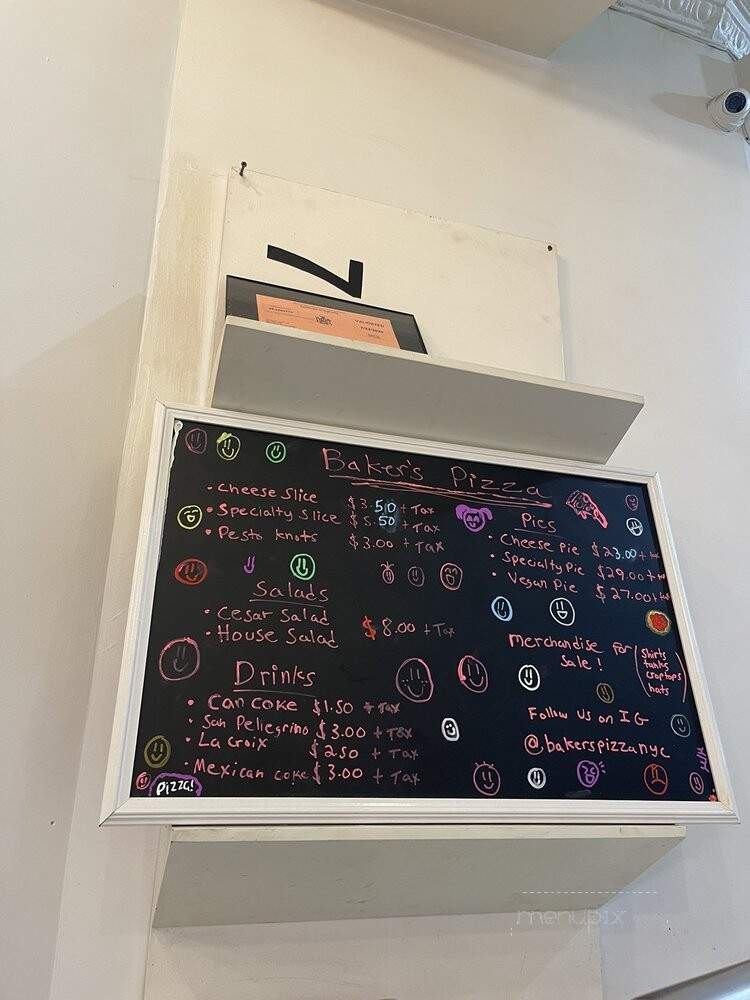 7
VALIDATED
Baker's Pizza
• Cheese Slice $3.50 + Tax
• Specialty Slice $5.50 + Tax
• Pesto Knots $3.00 + Tax
Salads
• Cesar Salad
• House Salad $8.00 + Tax
Drinks
• Can Coke $1.50 + Tax
• San Pellegrino $3.00 + Tax
• La Croix $2.50 + Tax
• Mexican coke $3.00 + Tax
Pizza!
Pies
• Cheese Pie $23.00 +
• Specialty Pie $29.00 +
• Vegan Pie $27.00 +
Merchandise for Sale!
(Shirts
tanks
croptops
hats)
Follow Us on IG
@bakerspizzanyc
menupix